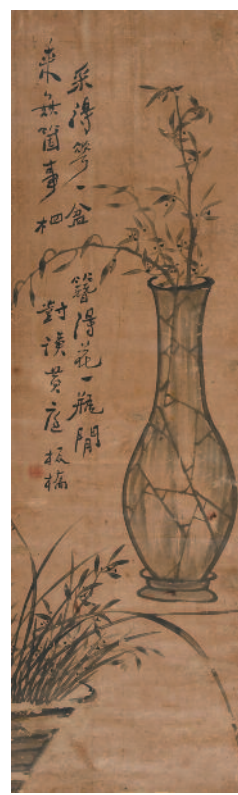 采得一盆簪得花一瓶閒
來無箇事相對讀黃庭板橋